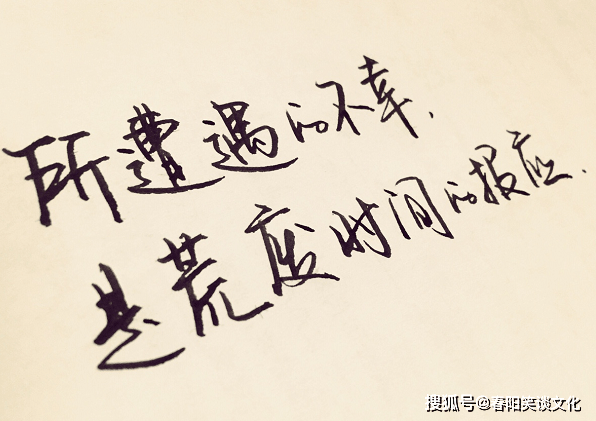 所遭遇的不幸.
是荒废时间的报应.
搜狐号@春阳笑谈文化